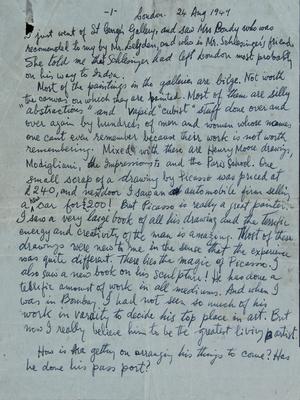 -1- London. 24 Aug 1949
I just went to St Georges Gallery, and saw Mrs Bondy who was
recomended to my by Mr. Leyden, and who is Mr. Schlesinger's friend.
She told me that Schlesinger had left London most probably
on his way to India.
Most of the paintings in the galleries are bilge. Not worth
the canvas on which they are painted. Most of them are silly
"abstractions" and "Vapid cubist" stuff done over and
over again by hundreds of men and women whose names
one can't even remember because their work is not worth
remembering. Mixed with these are Henry Moore drawings,
Modigliani, the Impressionists and the Paris School. One
small scrap of a drawing by Picasso was priced at
£240, and next door I saw an automobile firm selling
a new car for £200! But Picasso is really a great painter.
I saw a very large book of all his drawings and the terrific
energy and creativity of the man is amazing. Most of these
drawings were new to me in the sense that the experience
was quite different. There lies the magic of Picasso. I
also saw a new book on his sculptur! He has done a
terrific amount of work in all mediums. And when I
was in Bombay I had not seen so much of his
work in variaity to decide his top place in art. But
now I really believe him to be the greatest living artist
How is Ara getting on arranging his things to come? Has
he done his pass port?